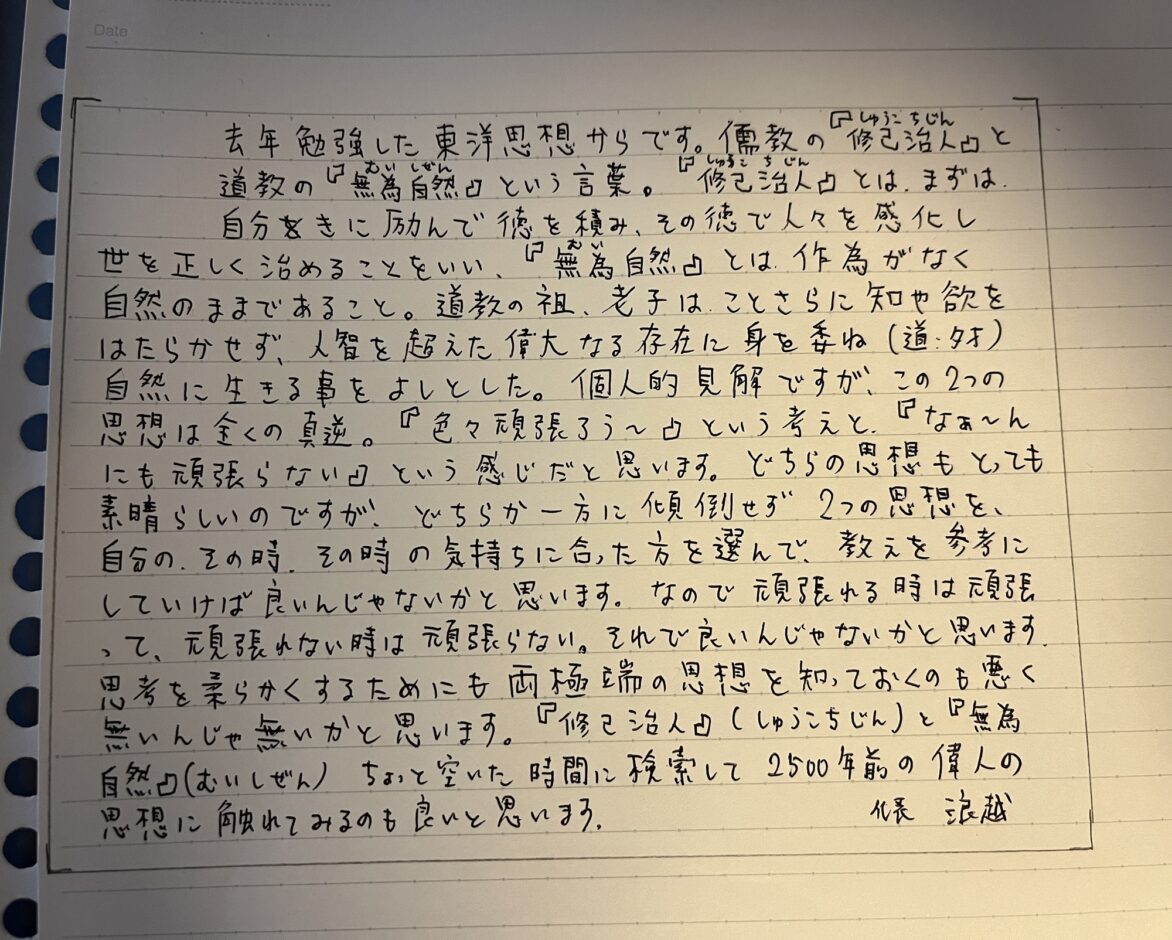 Date
去年勉強した東洋思想からです。儒教の『修己治人』と
しゅうこちじん
道教の『無為自然』という言葉。『修己治人』とは、まずは、
むいしぜん しゅうこちじん
自分をきに励んで徳を積み、その徳で人々を感化し
世を正しく治めることをいい、『無為自然』とは、作為がなく
むい
自然のままであること。道教の祖、老子は、ことさらに知や欲を
はたらかせず、人智を超えた偉大なる存在に身を委ね(道・タオ)
自然に生きる事をよしとした。個人的見解ですが、この2つの
思想は全くの真逆。『色々頑張ろう〜』という考えと、『なぁ〜ん
にも頑張らない』という感じだと思います。どちらの思想もとっても
素晴らしいのですが、どちらか一方に傾倒せず2つの思想を、
自分の、その時、その時の気持ちに合った方を選んで、教えを参考に
していけば良いんじゃないかと思います。なので頑張れる時は頑張
って、頑張れない時は頑張らない。それで良いんじゃないかと思います。
思考を柔らかくするためにも両極端の思想を知っておくのも悪く
無いんじゃ無いかと思います。『修己治人』(しゅうこちじん)と『無為
自然』(むいしぜん) ちょっと空いた時間に検索して2500年前の偉人の
思想に触れてみるのも良いと思います。 浪越